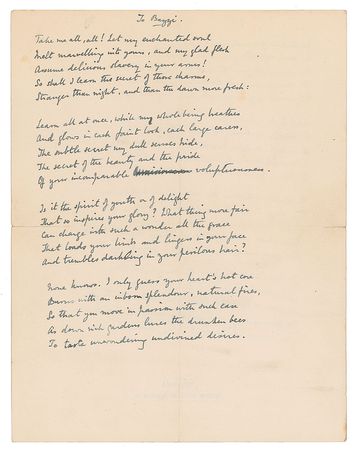 To Bayzi.
Take me all, all! Let my enchanted soul
Melt marvelling into yours, and my glad flesh
Assume delicious slavery in your arms!
So shall I learn the secret of those charms,
Stranger than night, and than the dawn more fresh:
Learn all at once, while my whole being breathes
And glows in each faint look, each large caress,
The subtle secret my dull senses hide,
The secret of the beauty and the pride
Of your incomparable voluptuousness.
Is it the spirit of youth or of delight
That so inspires your glory? What thing more fair
Can change into such a wonder all the grace
That loads your limbs and lingers in your face
And trembles darkling in your perilous hair?
None knows. I only guess your heart's hot core
Burns with an inborn splendour, natural fires,
So that you move in passion with such ease
As down rich gardens lures the drunken bees
To taste unwondering undivined desires.